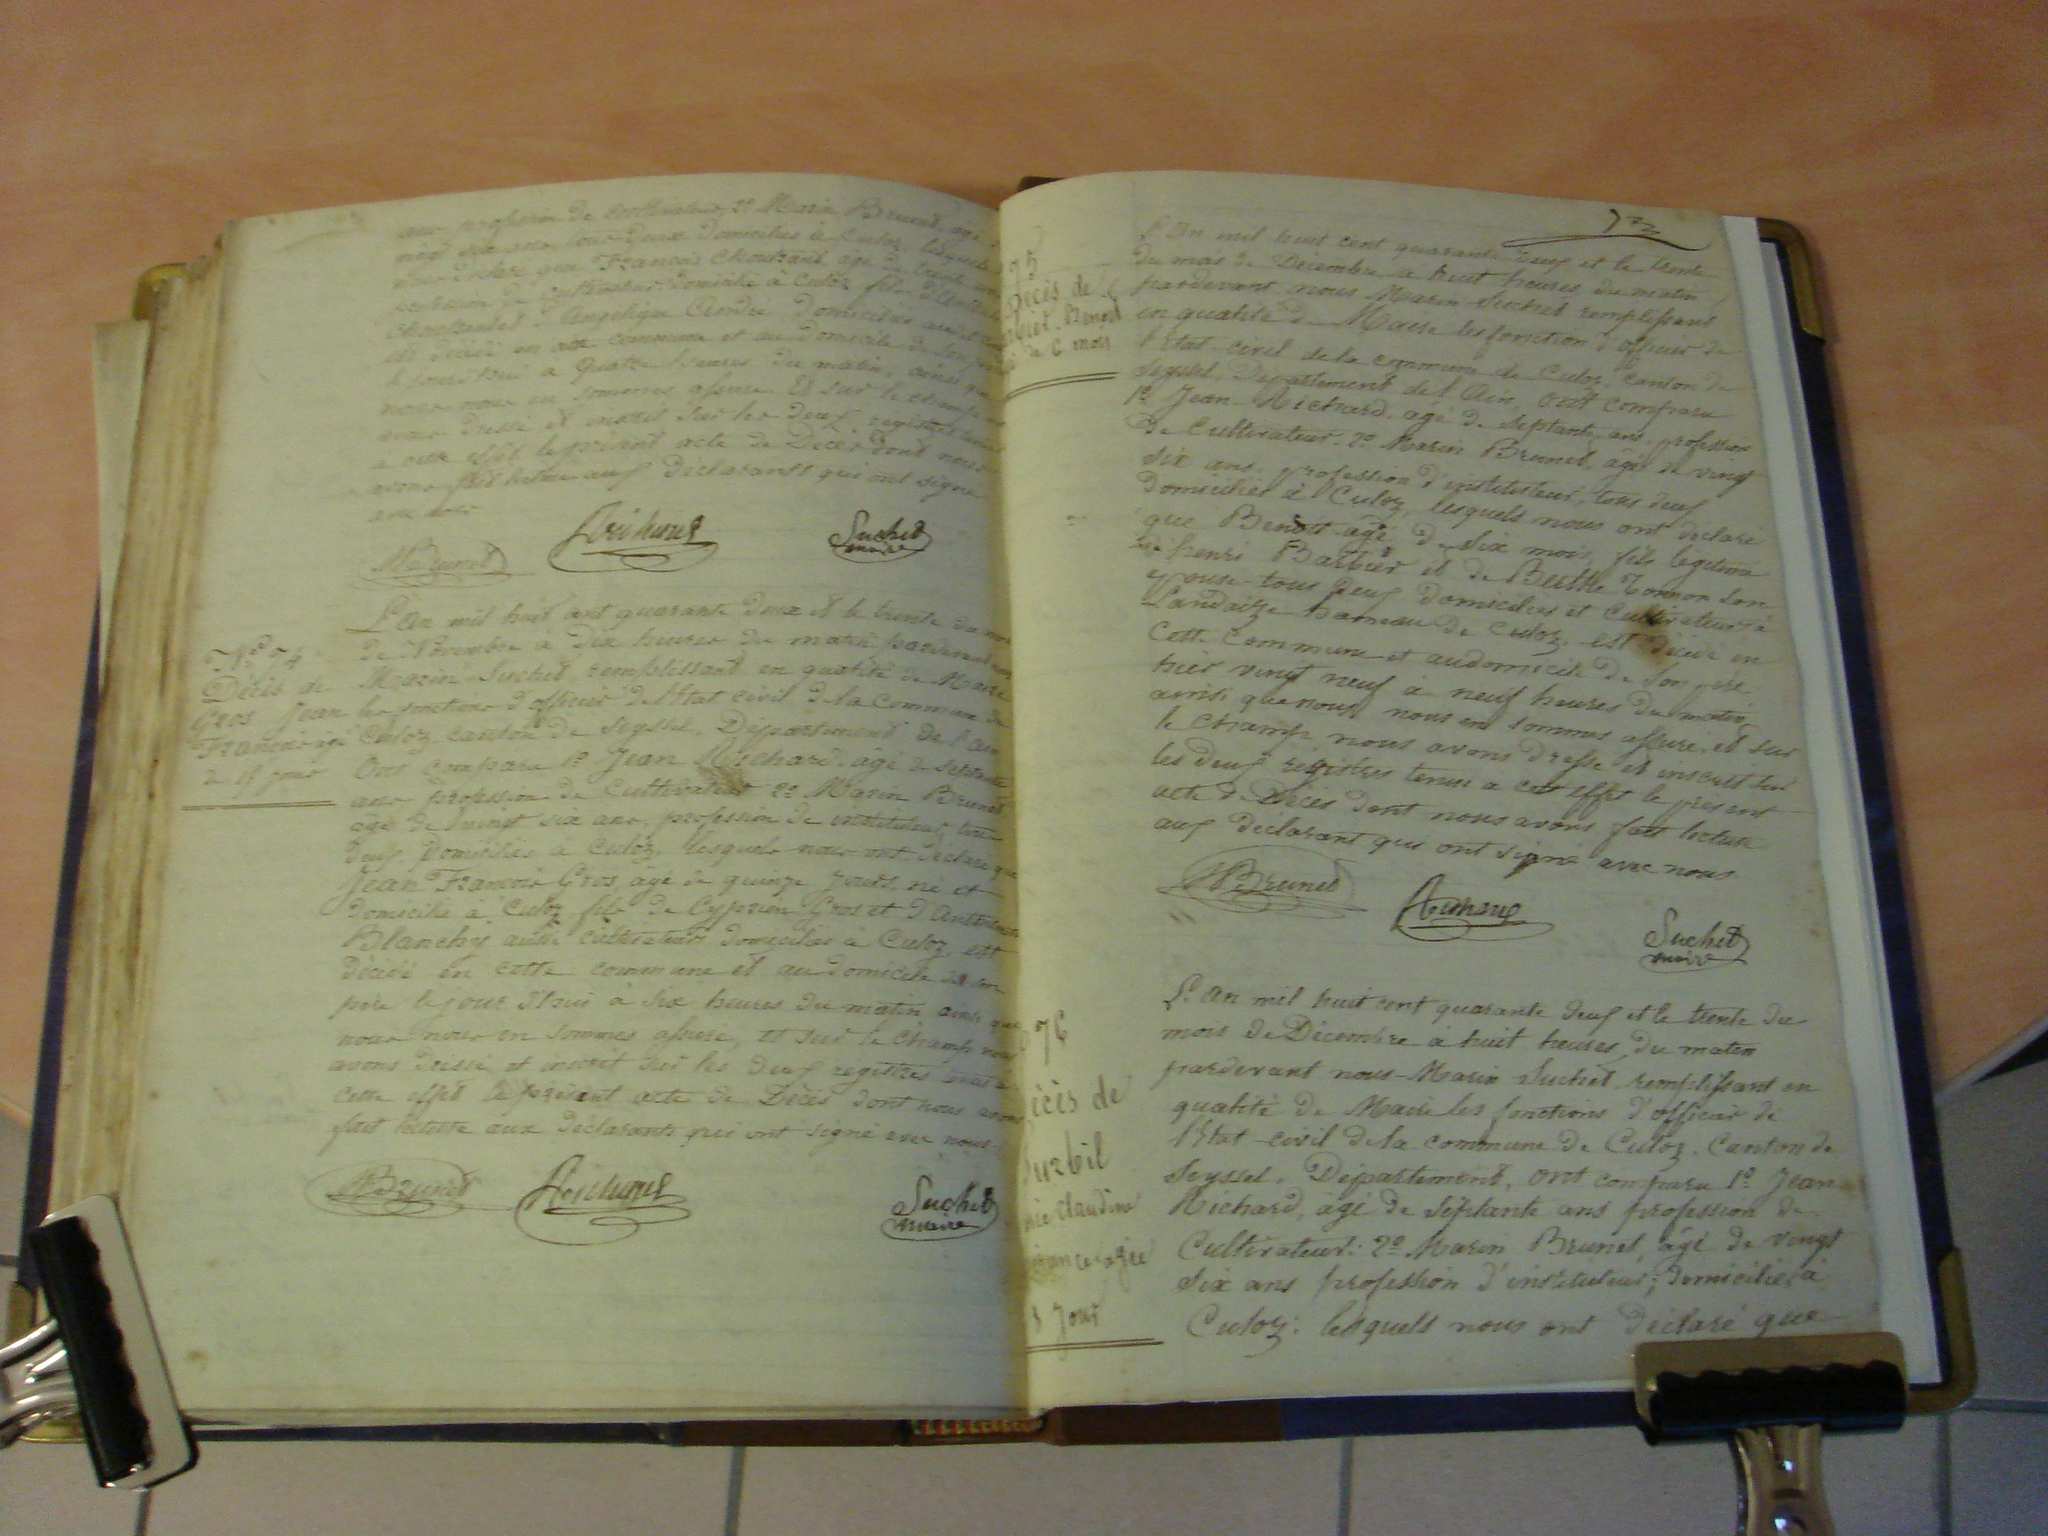 ans profession de Cultivateur, 2º Marin Brunet, agé
vingt six ans, tous deux domiciliés à Culoz, lesquels
nous déclaré que François Chouzant agé de trente
profession de cultivateur domicilié à Culoz fils d'
d'Angélique Cendre domiciliés
est décédé en cette commune et au domicile de son
le jourd'hui à quatre heures du matin, ainsi que
nous nous en sommes assuré. Et sur le champ
avons dressé et inscrit sur les deux registres
à cette effet le présent acte de Décès dont nous
avons fait lecture aux déclarants qui ont signé
avec nous
MBrunet Suchet
maire
Nº 74
Décès de
Gros Jean
François agé
de 15 jours
L'An mil huit cent quarante deux et le trente du mois
de Novembre à dix heures du matin pardevant nous
Marin Suchet, remplissant en qualité de Maire
les fonctions d'officier de l'Etat civil de la commune de
Culoz canton de Seyssel, Département de l'ain
Ont comparu 1º Jean Richard, âgé de septante
ans profession de Cultivateur 2º Marin Brunet
âgé de vingt six ans, profession de instituteur, tous
deux domiciliés à Culoz, lesquels nous ont déclaré que
Jean François Gros, agé de quinze jours, né et
domicilié à Culoz fils de Cyprien Gros et d'
Blanchy aussi cultivateurs domiciliés à Culoz, est
décédé en cette commune et au domicile de son
père le jour d'hui à six heures du matin ainsi que
nous nous en sommes assuré, et sur le champ nous
avons dressé et inscrit sur les deux registres tenus à
cette effet le présent acte de Décès dont nous avons
fait lecture aux déclarants qui ont signé avec nous
MBrunet Suchet
maire
75
Décès de
Benoit
de 6 mois
L'An mil huit cent quarante deux et le trente
du mois de Décembre à huit heures du matin
pardevant nous Marin Suchet remplissant
en qualité de Maire les fonction d'officier de
l'Etat-civil de la commune de Culoz, canton de
Seyssel, Département de l'Ain, Ont comparu
1º Jean Richard, agé de septante ans profession
de Cultivateur. 2º Marin Brunet, âgé de vingt
six ans, profession d'instituteur, tous deux
domiciliés à Culoz, lesquels nous ont déclaré
que Benoit agé de six mois, fils légitime
de henri Barbier et de Berthe Tonnon son
épouse tous deux domiciliés et Cultivateurs à
Landaize hameau de Culoz, est décédé en
cette commune et au domicile de son père
hier vingt neuf à neuf heures du matin
ainsi que nous nous en sommes assuré, et sur
le champ nous avons dressé et inscrit sur
les deux régistres tenus à cet effet le présent
acte de Décès dont nous avons fait lecture
aux déclarant qui ont signé avec nous
MBrunet Suchet
maire
76
Décès de
Surbil
Claudine
agée
8 Jours
L'An mil huit cent quarante deux et le trente du
mois de Décembre à huit heures du matin
pardevant nous Marin Suchet remplissant en
qualité de Maire les fonctions d'officier de
l'Etat-civil de la commune de Culoz, Canton de
Seyssel, Département, Ont comparu 1º Jean
Richard, âgé de septante ans profession de
Cultivateur: 2º Marin Brunet, âgé de vingt
six ans profession d'instituteur; domiciliés à
Culoz: lesquels nous ont déclaré que